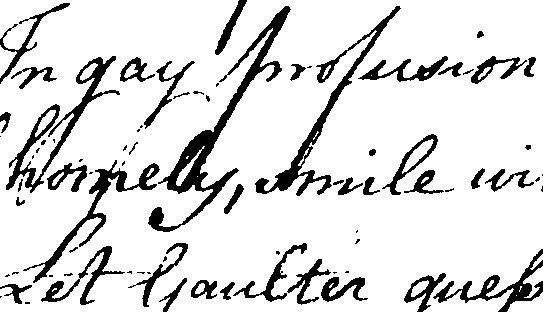 In gay profusion
homely, smile wi
Let Gaulter quess